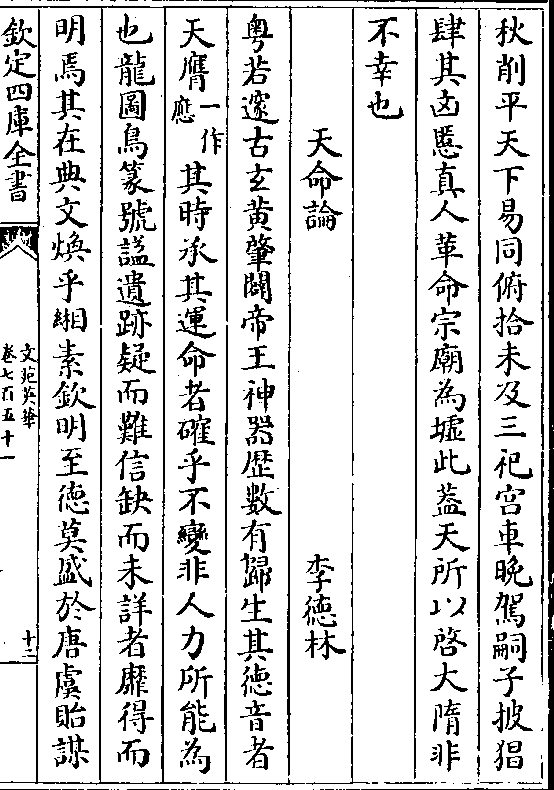 秋削平天下易同俯拾未及三祀宫車晚駕嗣子披猖
肆其凶慝真人革命宗廟為墟此葢天所以啓大隋非
不幸也
天命論　李德林
粤若邃古玄黄肇闢帝王神器歴數有歸生其德音者
天膺一作應其時承其運命者確乎不變非人力所能為
也龍圖鳥篆號諡遺跡疑而難信缺而未詳者靡得而
明焉其在典文煥乎緗素欽明至德莫盛於唐虞貽謀
欽定四庫全書
文苑英華
卷七百五十一
十二